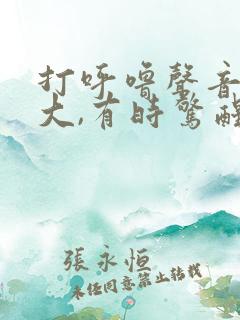 打呼嚕聲音
大,有時驚醒
張永恒
未经同意禁止转载